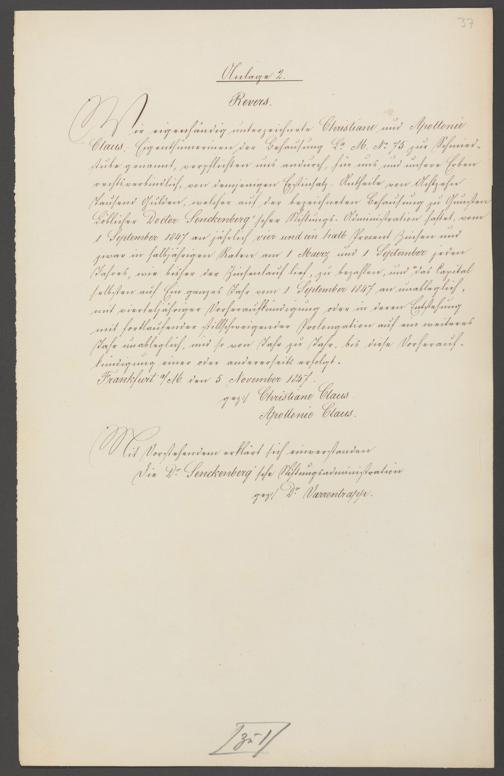 37
Anlage 2.
Revers.
Wir eigenhändig unterzeichnete Christiane und Apollonie
Claus, Eigenthümerinnen der Behausung La. M. No. 75 zur Schmied-
stube genannt, verpflichten uns andurch, für uns und unsere Erben
rechtsverbindlich, von demjenigen Antheile von Achtzehn
Tausend Gulden, welcher auf der bezeichneten Behausung zu Gunsten
Löblicher Doctor Senckenberg'scher Stiftungs-Administration haftet, vom
1 September 1847 an jährlich vier und ein halb Procent Zinsen und
zwar in halbjährigen Raten am 1 Maerz und 1 September jeden
Jahres, wie bisher der Zinsenlauf lief, zu bezahlen, und das Capital
selbsten auf Ein ganzes Jahr vom 1 September 1847 an unableglich,
mit vierteljähriger Vorheraufkündigung oder in deren Entstehung
mit fortlaufender stillschweigender Prolongation auf ein weiteres
Jahr unableglich, und so von Jahr zu Jahr, bis diese Vorherauf-
kündigung einer oder andererseits erfolgt.
Frankfurt a/M. den 5 November 1847.
gez. Christiane Claus
Apollonie Claus.
Mit Vorstehendem erklärt sich einverstanden
Die Dr. Senckenberg'sche Stiftungsadministration
gez. Dr. Varrentrapp.